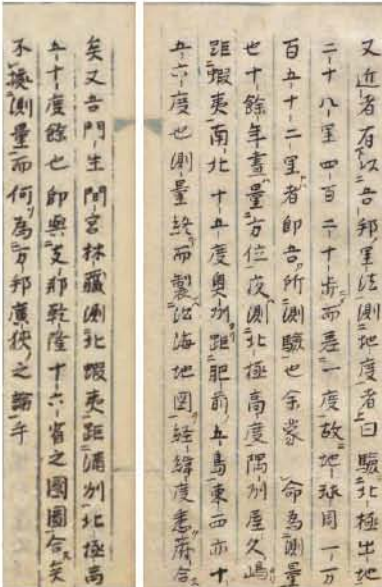 又近者有以吾邦里法測地度者曰驗北極出地
二十八里四百二十步而差一度故地球周一万
百五十二里者即吾所測驗也余蒙 命為測量
也十餘年晝量方位夜測北極高度隅州屋久嶋
距蝦夷南北十五度奥州距肥前五島東西亦十
五六度也測量終而製沿海地図経緯度悉符合
矣又吾門生間宮林蔵測北蝦夷距満州北極高
五十度餘也即與支那乾隆十六省之圖圖合矣
不據測量而何為万邦廣狭之論乎